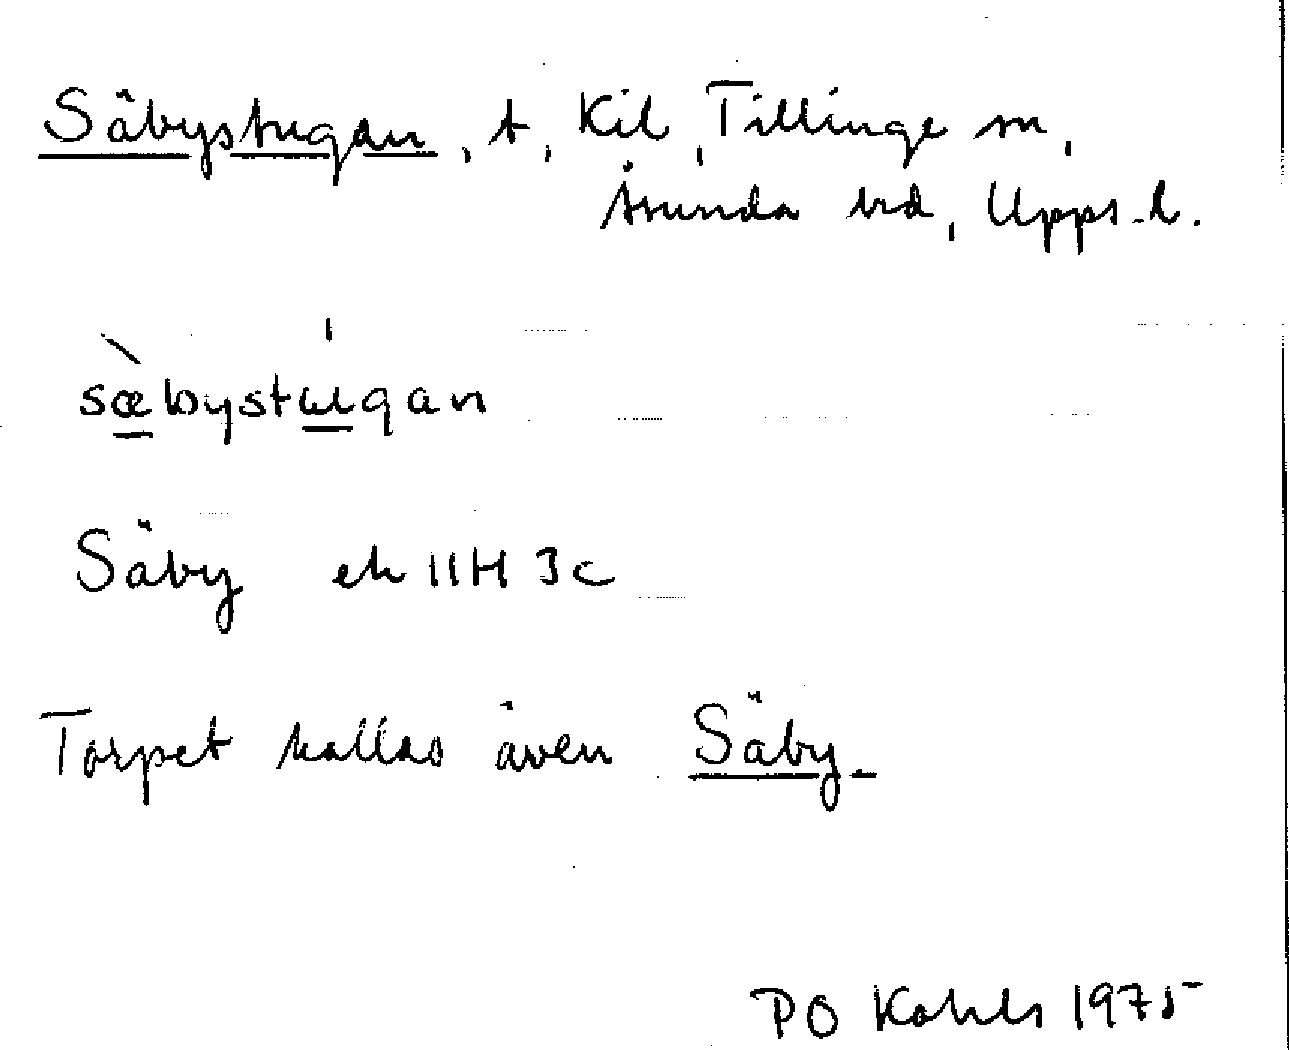 Säbystugan, t, Kil, Tillinge sn,
Åsunda hd, Upps. l.
sæ̀bystɯ́gan
Säby ek 11H 3c
Torpet kallas även Säby.
PO Kahls 1975